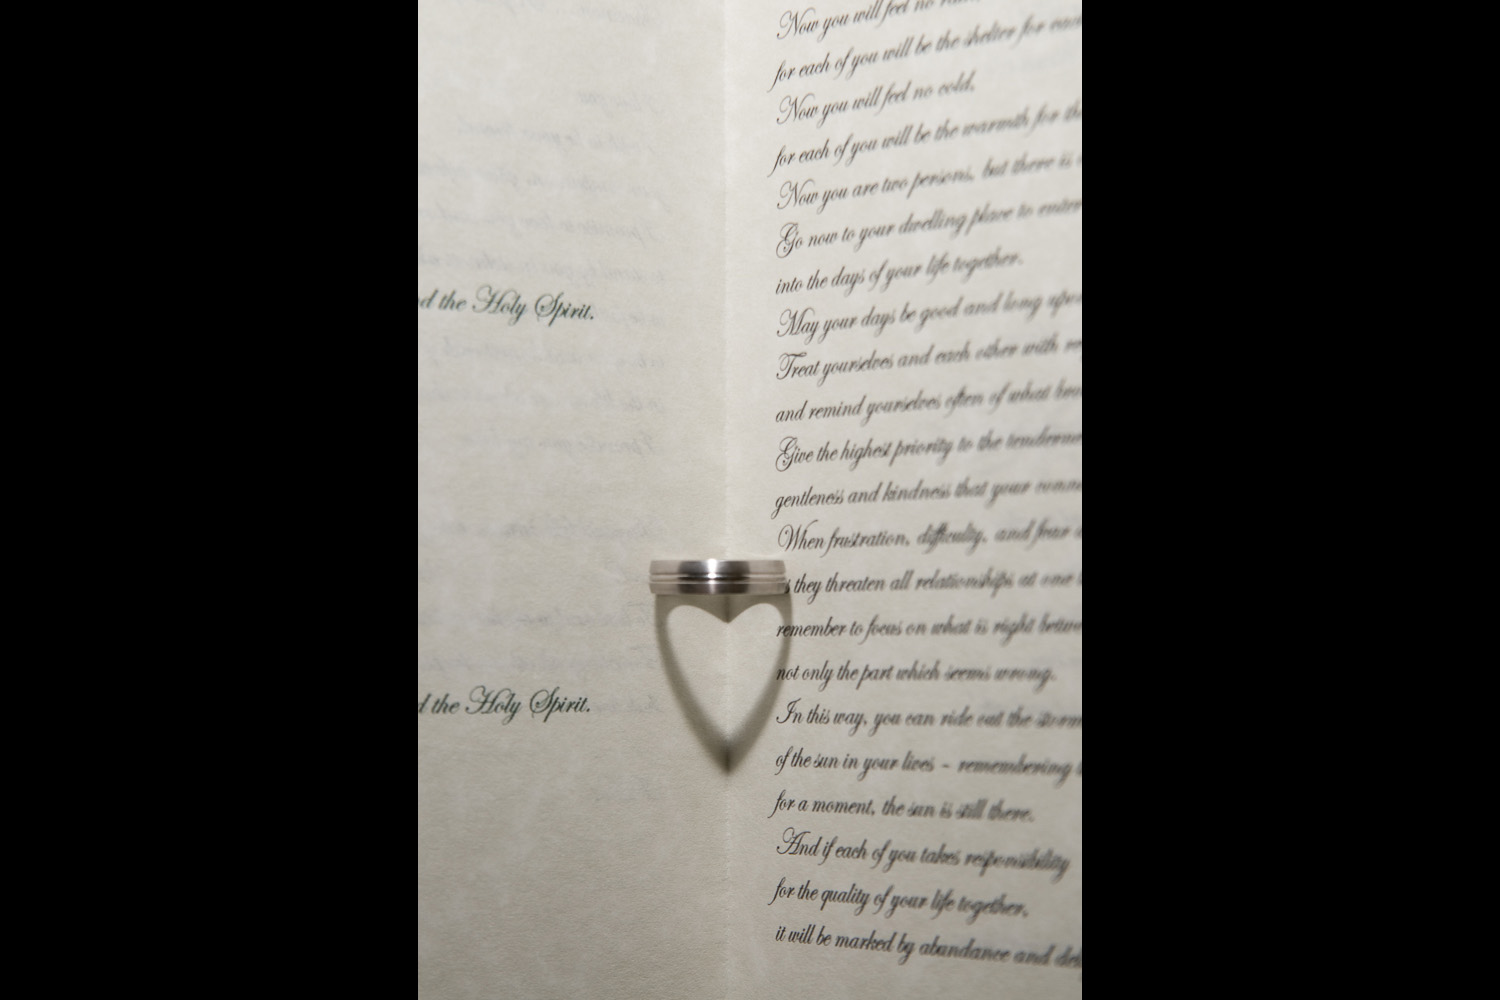 d the Holy Spirit.
d the Holy Spirit.
Now you will feel no
for each of you will be the shelter for
Now you will feel no cold,
for each of you will be the warmth for
Now you are two persons, but there is
Go now to your dwelling place to enter
into the days of your life together.
May your days be good and long upon
Treat yourselves and each other with
and remind yourselves often of what
Give the highest priority to the
gentleness and kindness that your
When frustration, difficulty, and fear
they threaten all relationships at one
remember to focus on what is right
not only the part which seems wrong.
In this way, you can ride out the
of the sun in your lives - remembering
for a moment, the sun is still there.
And if each of you takes responsibility
for the quality of your life together,
it will be marked by abundance and